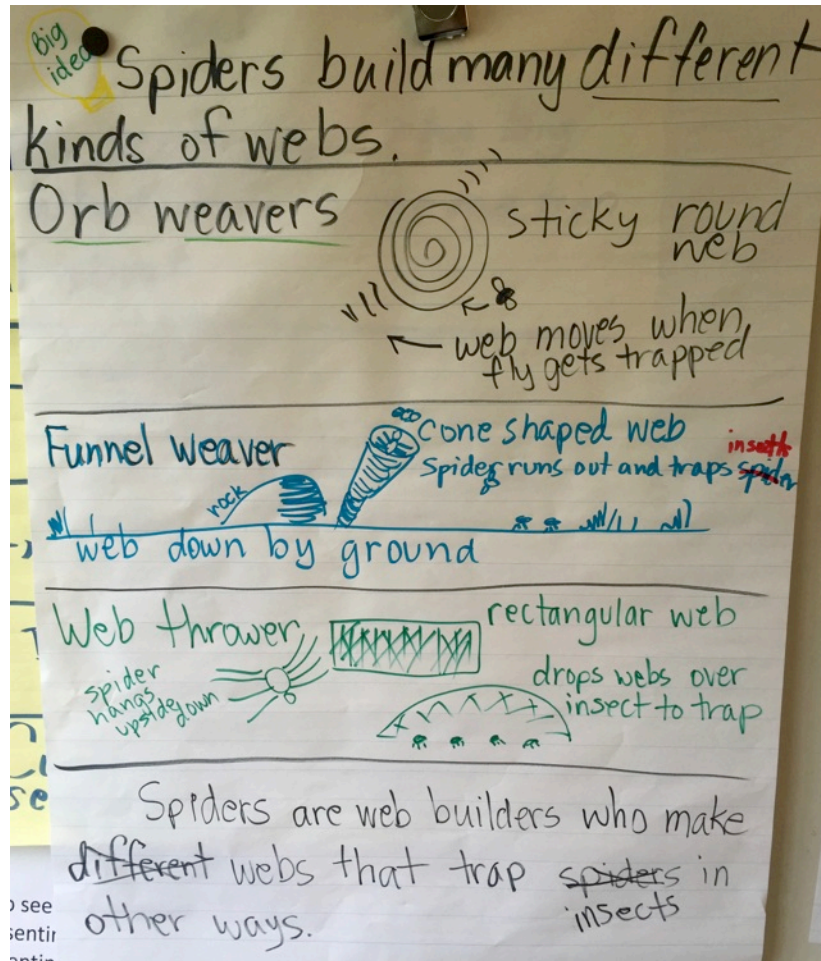 Big
idea
Spiders build many different
kinds of webs.
Orb weavers
sticky round
web
web moves when
fly gets trapped
Funnel weaver
cone shaped web
insects
Spider runs out and traps spider
rock
web down by ground
Web thrower
rectangular web
spider
hangs
upside down
drops webs over
insect to trap
Spiders are web builders who make
different webs that trap spiders in
insects
other ways.
se
o see